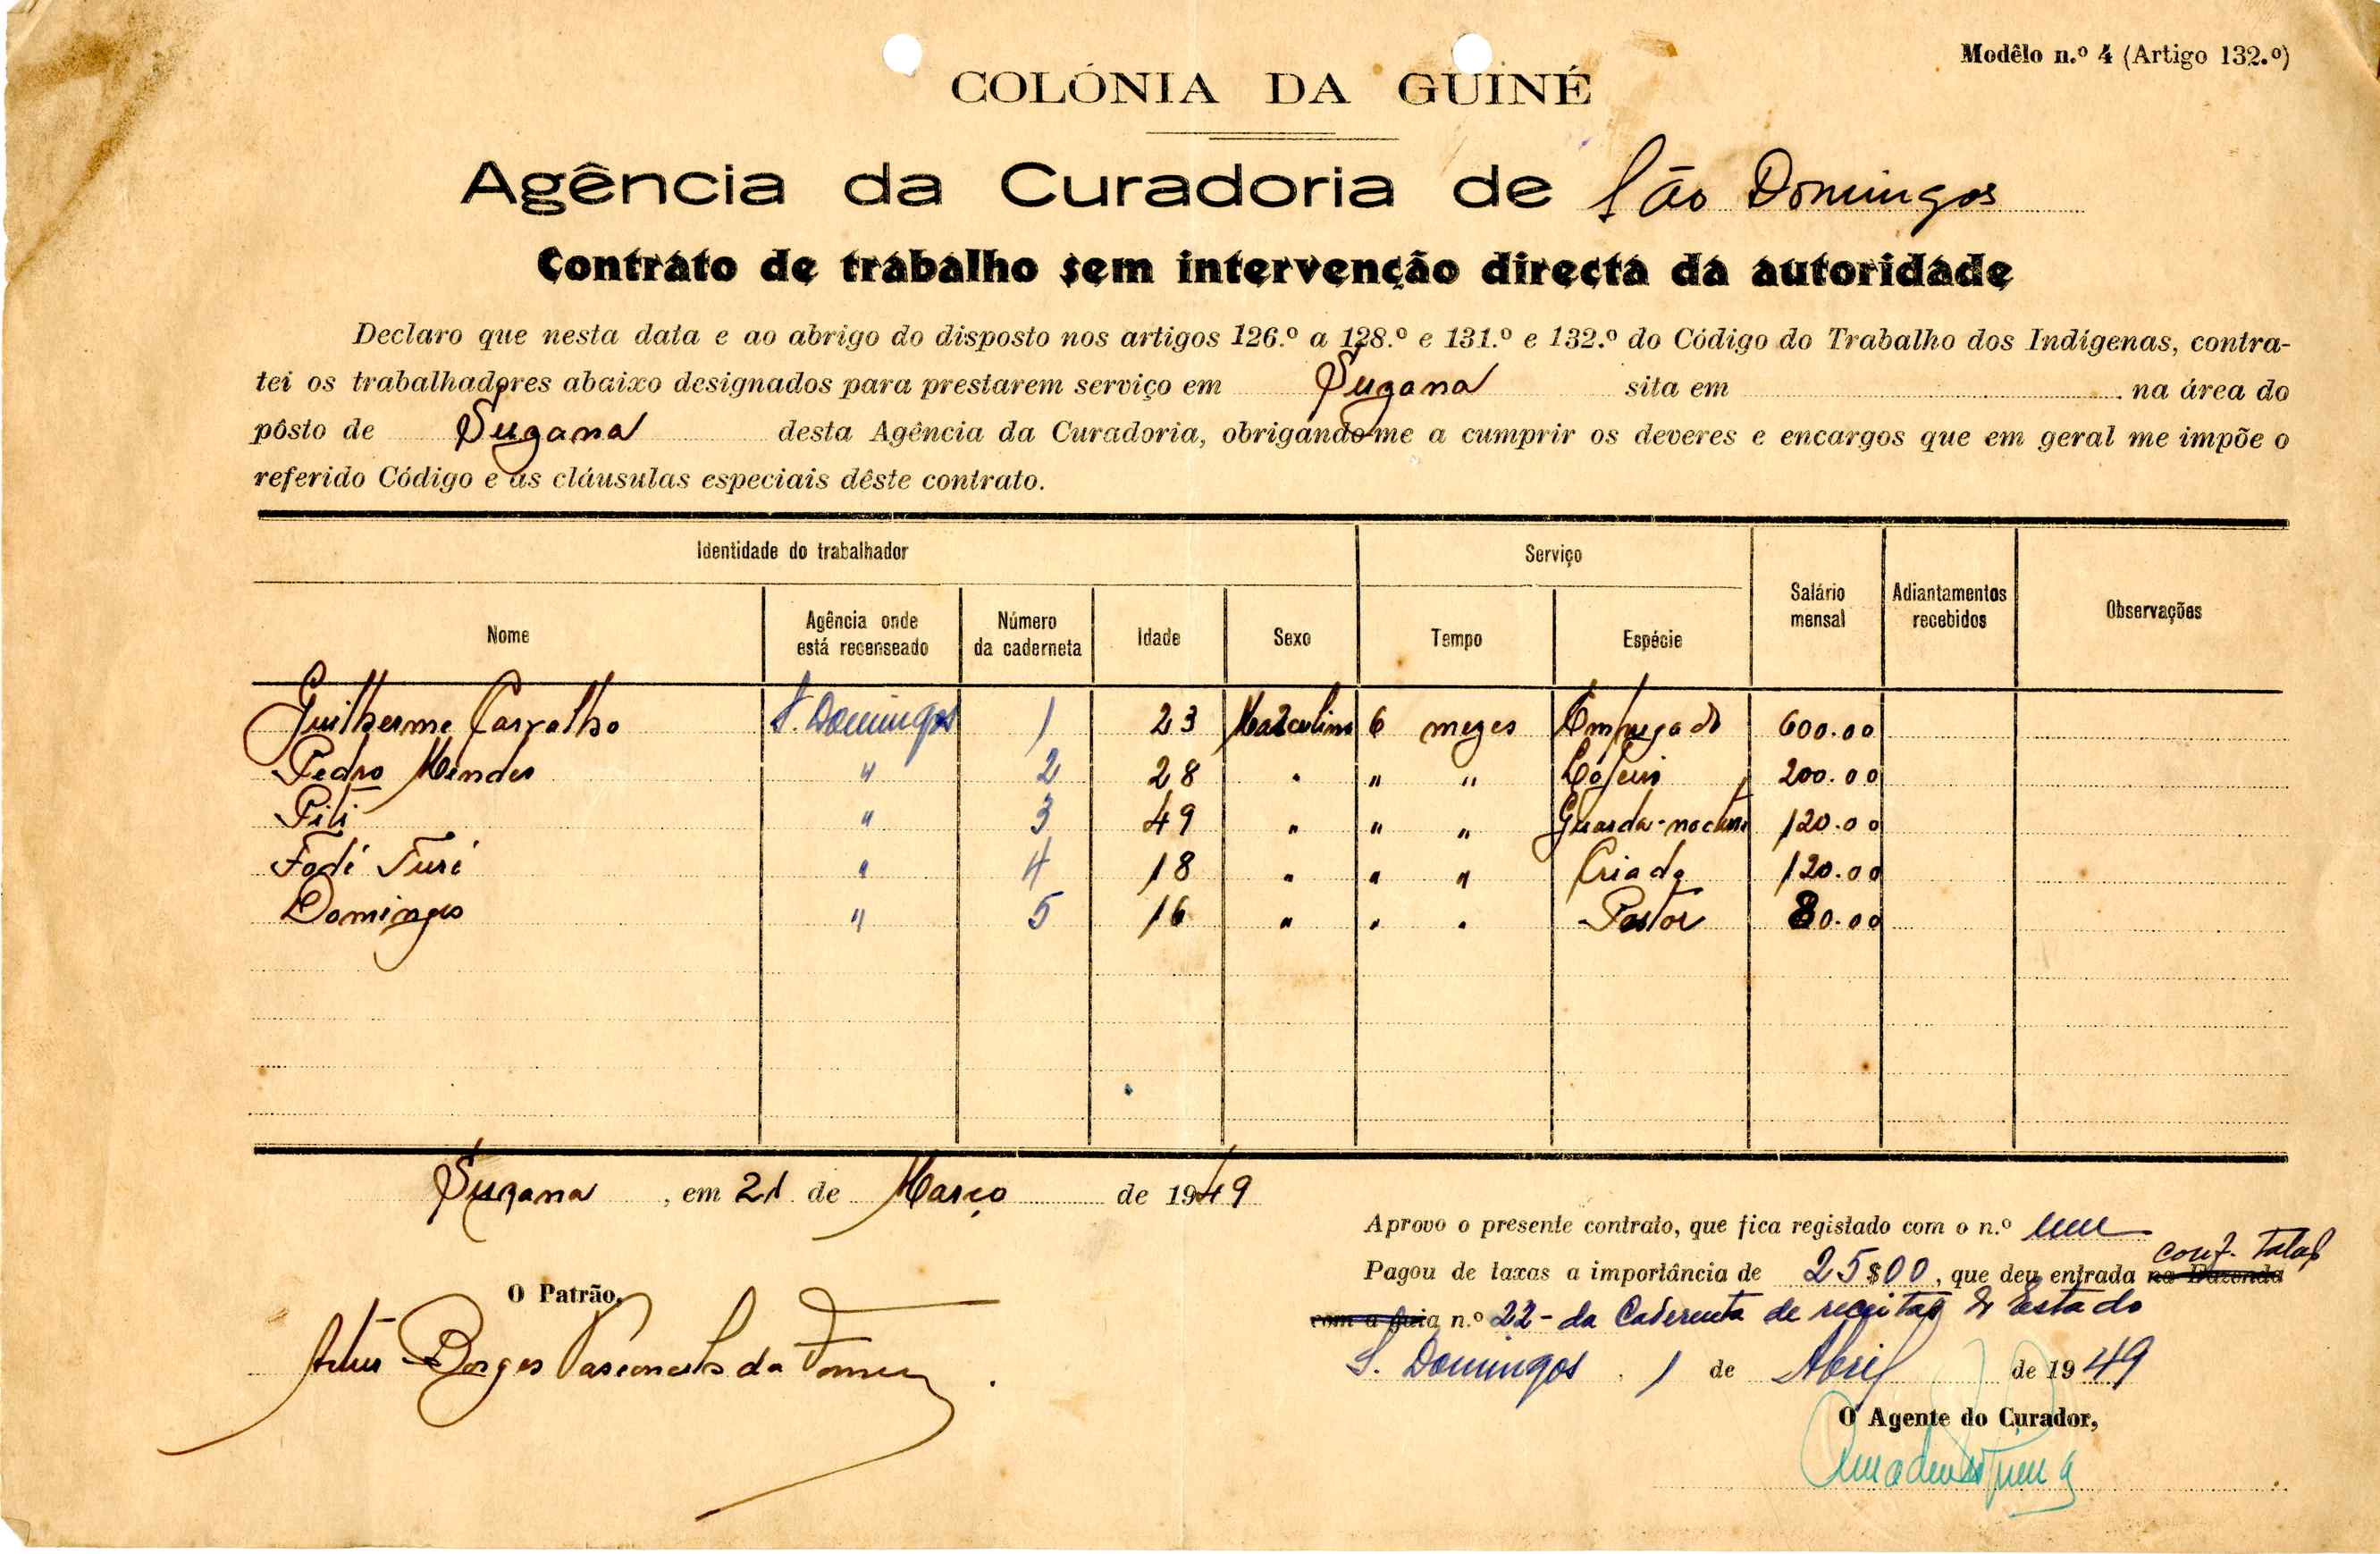 Modêlo n.º 4 (Artigo 132.º)
COLÓNIA DA GUINÉ
Agência da Curadoria de São Domingos
Contrato de trabalho sem intervenção directa da autoridade
Declaro que nesta data e ao abrigo do disposto nos artigos 126.º a 128.º e 131.º e 132.º do Código do Trabalho dos Indígenas, contra-
tei os trabalhadores abaixo designados para prestarem serviço em Suzana sita em na área do
pôsto de Suzana desta Agência da Curadoria, obrigando-me a cumprir os deveres e encargos que em geral me impõe o
referido Código e as cláusulas especiais dêste contrato.
Identidade do trabalhador Serviço Salário mensal Adiantamentos recebidos Observações
Nome Agência onde está recenseado Número da caderneta Idade Sexo Tempo Espécie
Guilherme Carvalho S. Domingos 1 23 Masculino 6 mezes Empregado 600.00
Pedro Mendes " 2 28 " " " 200.00
Piti " 3 49 " " " Guarda-nocturno 120.00
Fodé Turé " 4 18 " " " Criado 120.00
Domingos " 5 16 " " " Pastor 80.00
Suzana, em 21 de Março de 1949
Aprovo o presente contrato, que fica registado com o n.º um
Pagou de taxas a importância de 25$00, que deu entrada na Fazenda conf. Talão
com a guia n.º 22 - da Caderneta de receitas do Estado
S. Domingos, 1 de Abril de 1949
O Patrão,
Artur Borges Vasconcelos da
O Agente do Curador,